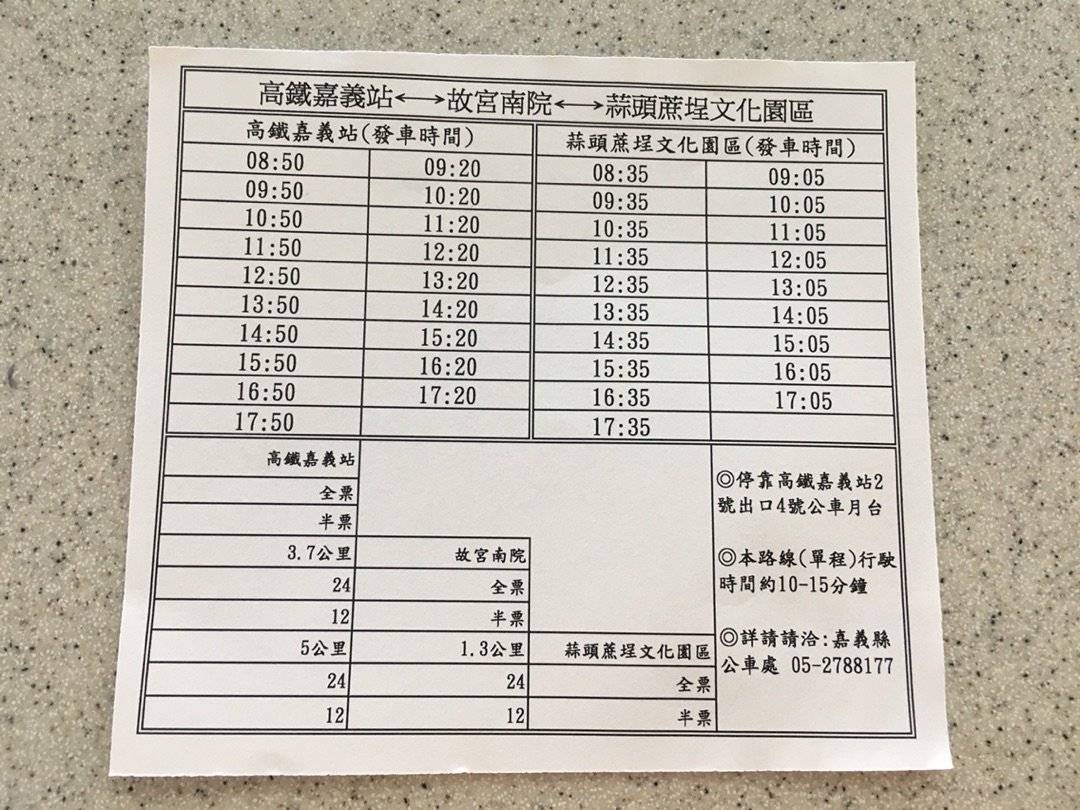 高鐵嘉義站←→故宮南院←→蒜頭蔗埕文化園區
高鐵嘉義站(發車時間) 蒜頭蔗埕文化園區(發車時間)
08:50 09:20 08:35 09:05
09:50 10:20 09:35 10:05
10:50 11:20 10:35 11:05
11:50 12:20 11:35 12:05
12:50 13:20 12:35 13:05
13:50 14:20 13:35 14:05
14:50 15:20 14:35 15:05
15:50 16:20 15:35 16:05
16:50 17:20 16:35 17:05
17:50 17:35
高鐵嘉義站
全票
半票
3.7公里 故宮南院
24 全票
12 半票
5公里 1.3公里 蒜頭蔗埕文化園區
24 24 全票
12 12 半票
◎停靠高鐵嘉義站2
號出口4號公車月台
◎本路線(單程)行駛
時間約10-15分鐘
◎詳請請洽:嘉義縣
公車處 05-2788177